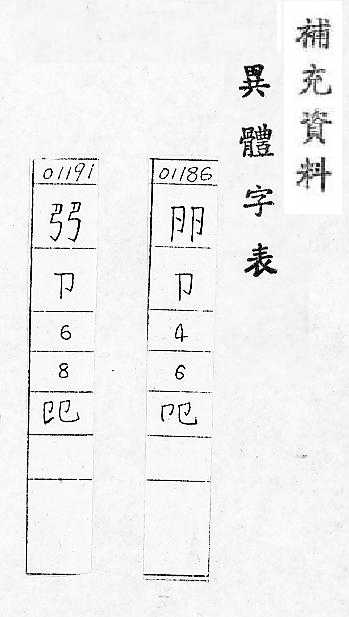 補充資料
異體字表
01186
卩
4
6
01191
卩
6
8